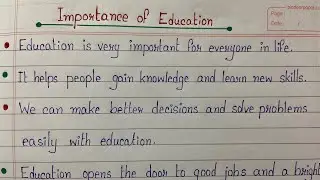 Importance of Education
Education is very important for everyone in life.
It helps people gain knowledge and learn new skills.
We can make better decisions and solve problems
easily with education.
Education opens the door to good jobs and a bright